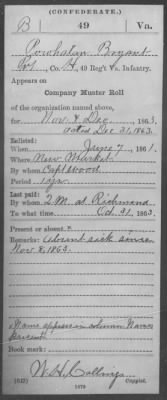 (CONFEDERATE.)
B 49 Va.
Powhatan Bryant
Co. H, 49 Reg't Va. Infantry.
Appears on
Company Muster Roll
of the organization named above,
for Nov. & Dec., 1863.
dated Dec. 31, 1863.
Enlisted:
When June 7, 1861.
Where New Market
By whom Capt Wood
Period 1 yr.
Last paid:
By whom Q.M. at Richmond
To what time Oct. 31, 1863.
Present or absent
Remarks: Absent sick since
Nov. 8, 1863.
Name appears in column Names
Present
Book mark:
W. H. Collings
(642) Copyist.